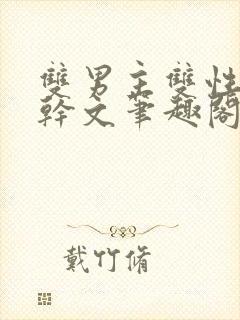 雙男主雙性
幹文筆趣閣
戴竹脩